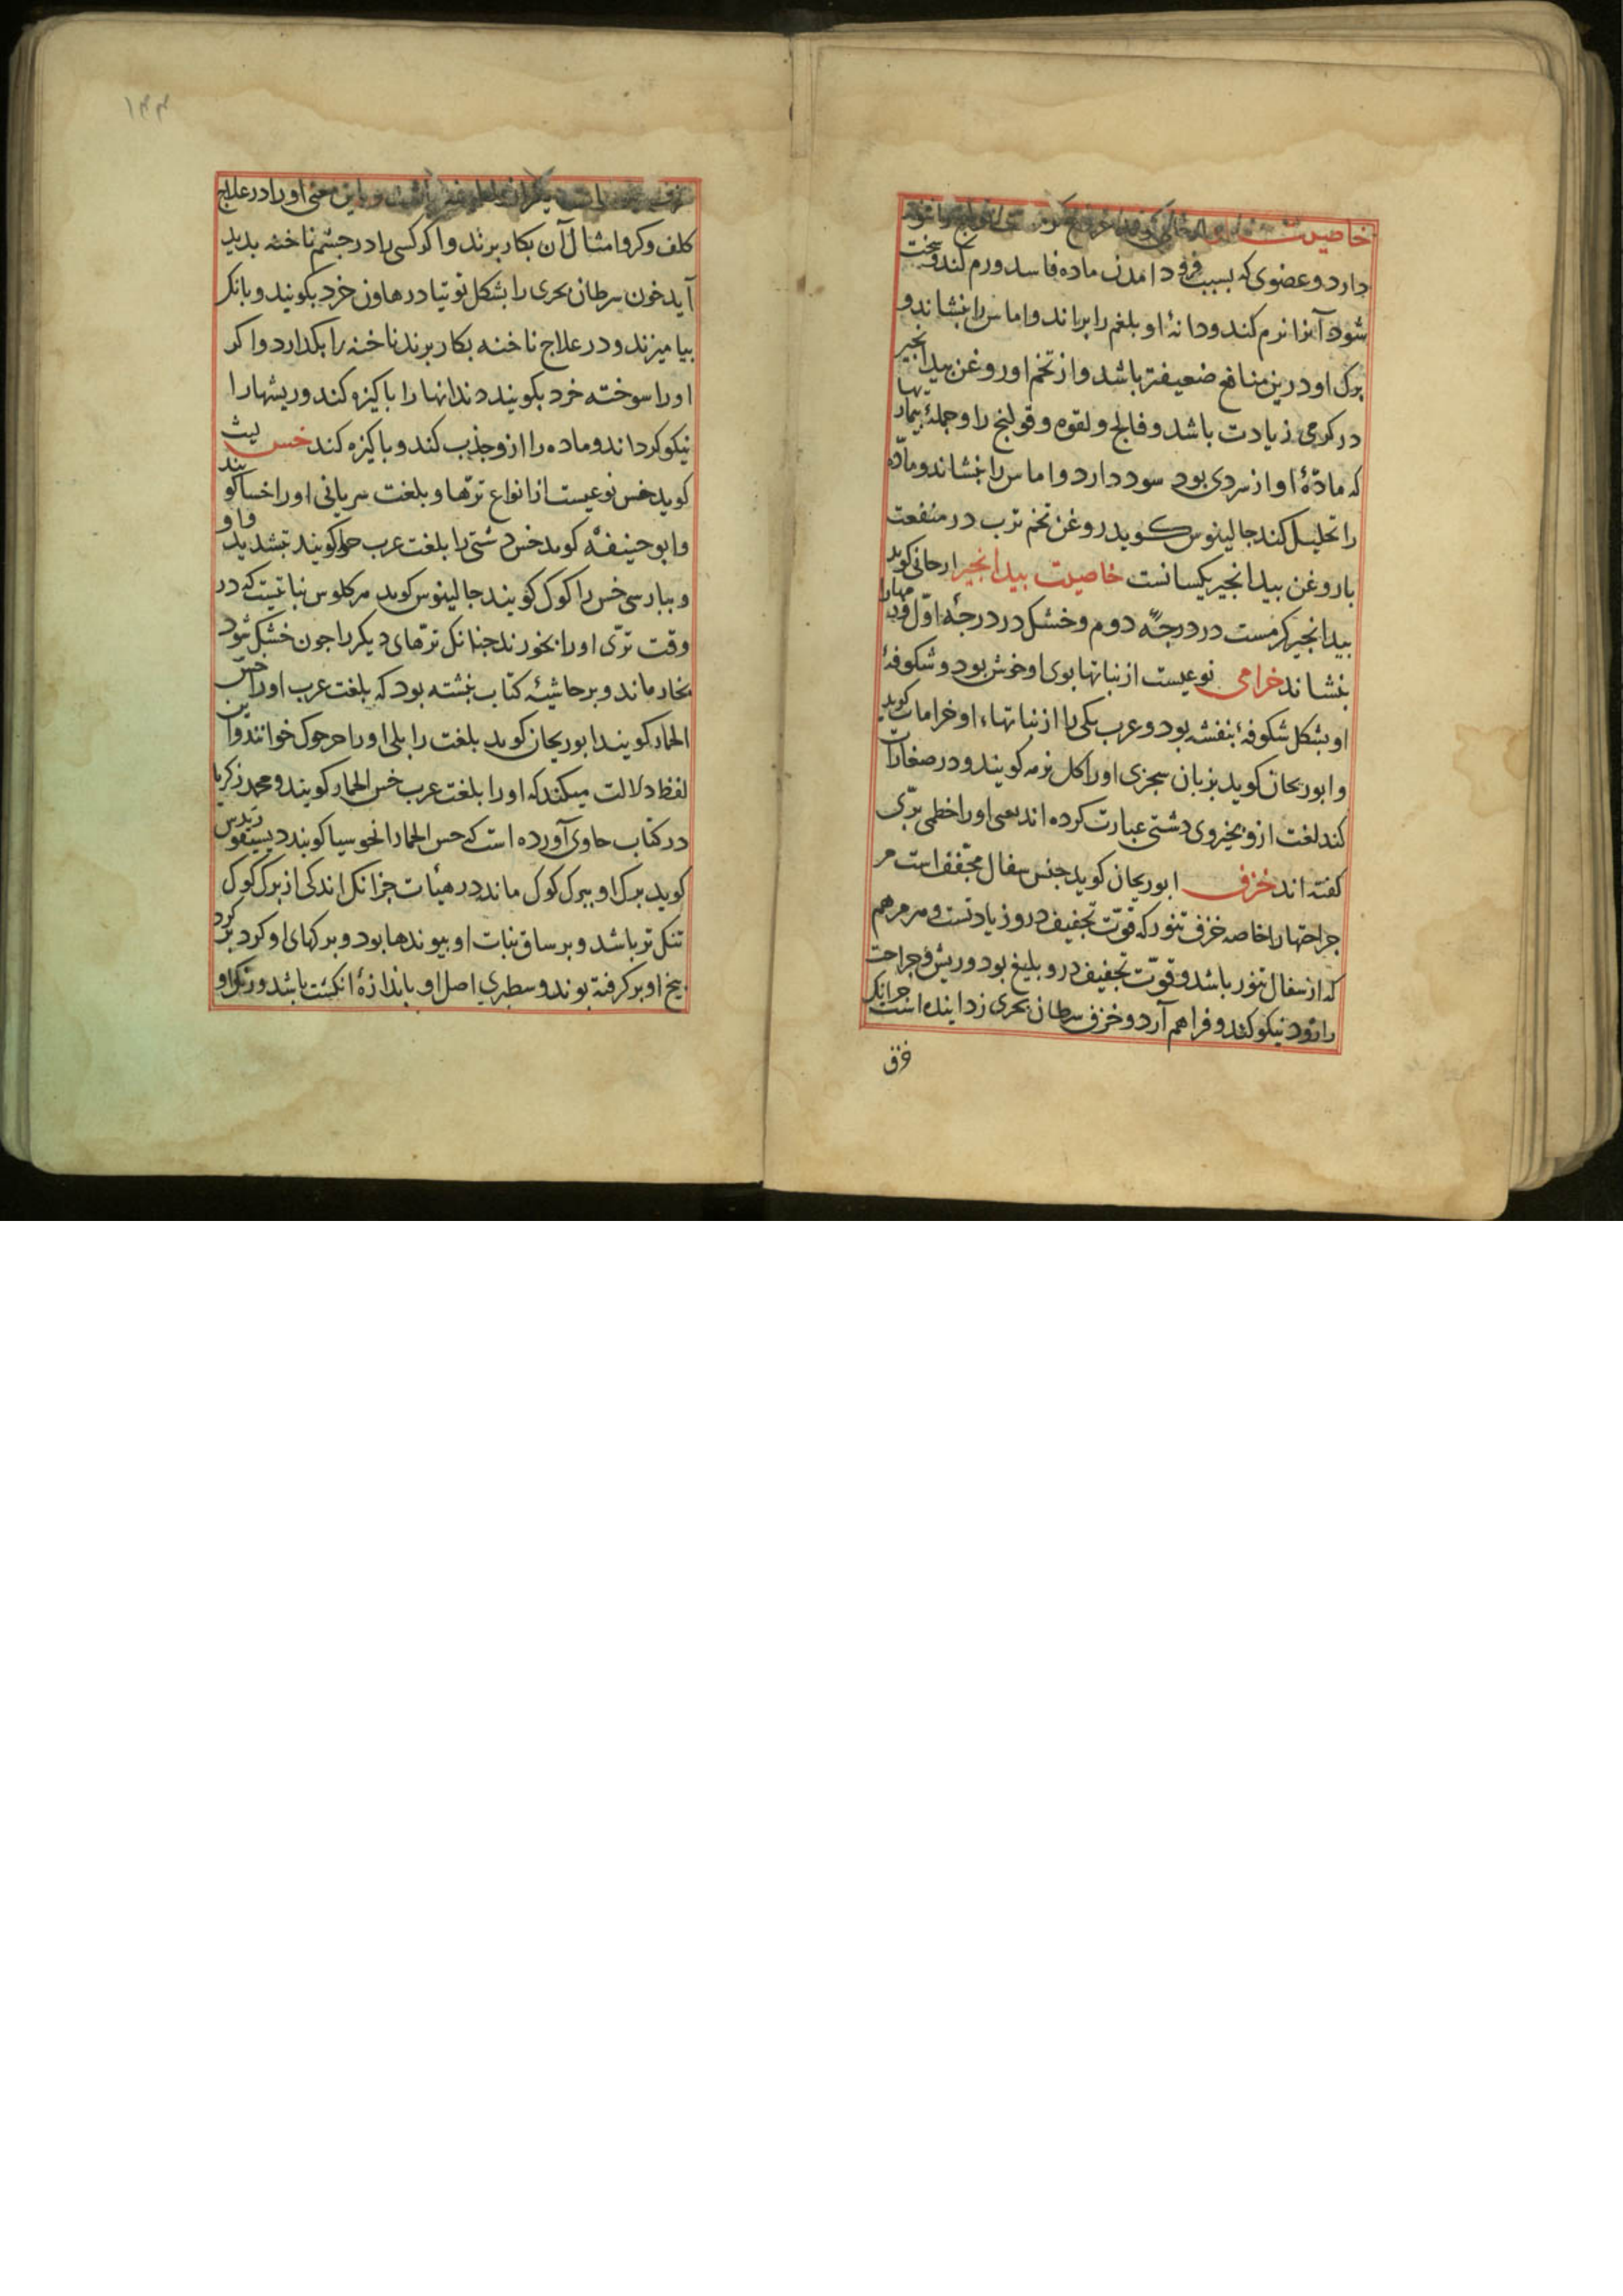 خاصیت
دارد و عضوی که بسبب فرود امدن ماده فاسد ورم کند و سخت
شود آنرا نرم کند و دانهٔ او بلغم را براند و اماس را بنشاند و
برک او درین منافع ضعیفتر باشد و از تخم او روغن بیدانجیر
در کرمی زیادت باشد و فالج و لقوه و قولنج را و جملهٔ بیماریها
که مادّهٔ او از سردی بود سود دارد و اماس را بنشاند و مادّه
را تحلیل کند جالینوس کوید روغن تخم ترب در منفعت
با روغن بیدانجیر یکسانست خاصیت بیدانجیر ارجانی کوید
بیدانجیر کرمست در درجهٔ دوم و خشک در درجهٔ اوّل
بنشاند خزامی نوعیست از نباتها بوی او خوش بود و شکوفهٔ
او بشکل شکوفهٔ بنفشه بود و عرب یکی را از نباتهاء او خزامات کوید
و ابوریحان کوید بزبان سجزی او را کل بزمه کویند و در صغارات
کند لغت ازو بخیروی دشتی عبارت کرده اند یعنی او را خطمی برّی
کفته اند خزف ابوریحان کوید جنس سفال مجفف است مر
جراحتها را خاصه خزف تنور که قوّت تجفیف درو زیادتست و مر مرهم
که از سفال تنور باشد و قوّت تجفیف درو بلیغ بود و ریش و جراحت
را زود نیکو کند و فراهم آرد و خزف سرطان بحری زداینده است جزانک
فرق
۱۴۴
و باین معنی او را در علاج
کلف و کر و امثال آن بکار برند و اکر کسی را در چشم ناخنه پدید
آید خون سرطان بحری را بشکل توتیا در هاون خرد بکویند و بانک
بیامیزند و در علاج ناخنه بکار برند ناخنه را بکدازد و اکر
او را سوخته خرد بکویند دندانها را پاکیزه کند و ریشها را
نیکو کرداند و ماده را ازو جذب کند و پاکیزه کند خس لیث
کوید خس نوعیست از انواع ترّها و بلغت سریانی او را خسا کویند
و ابو حنیفه کوید خس دشتی را بلغت عرب حوا کویند بتشدید واو
و بپارسی خس را کوک کویند جالینوس کوید مرکلوس نباتیست که در
وقت ترّی او را بخورند چنانک ترّهای دیکر را چون خشک شود
بخار ماند و بر حاشیهٔ کتاب نبشته بود که بلغت عرب او را خس
الحمار کویند ابوریحان کوید بلغت زابلی او را خرجوک خوانند و این
لفظ دلالت میکند که او را بلغت عرب خس الحمار کویند و محمد زکریا
در کتاب حاوی آورده است که خس الحمار انحوسیا کویند دیسقوریدس
کوید برک او ببرک کوک ماند در هیأت جزانک اندکی از برک کوک
تنک تر باشد و بر ساق نبات او پیوندها بود و برکهای او کرد بر کرد
بیخ او بر کرفته بوند و سطبری اصل او باندازهٔ انکشت باشد و رنک او